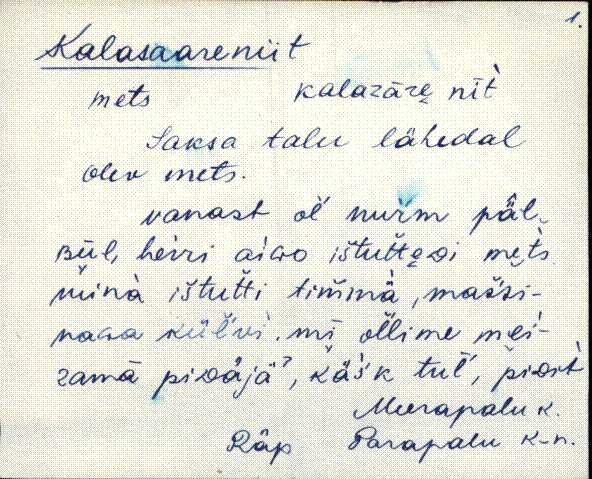 1.
Kalasaareniit
mets kalazāre̬ nīt̀
Saksa talu lähedal
olev mets.
vanast ol' nuŕm päl
būl, herri aiɢo ištutte̬di mets
minà ištutti timmä, massi-
naɢa külvi. mī ollime mei-
zamā piDäjäʔ, käśk tul', piDit̀
Meerapalu k.
Räp Parapalu k-n.